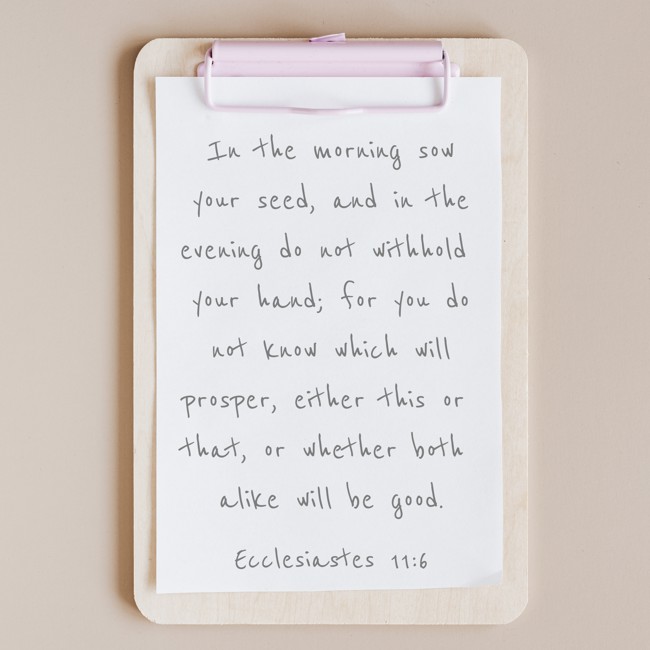 In the morning sow
your seed, and in the
evening do not withhold
your hand; for you do
not know which will
prosper, either this or
that, or whether both
alike will be good.
Ecclesiastes 11:6